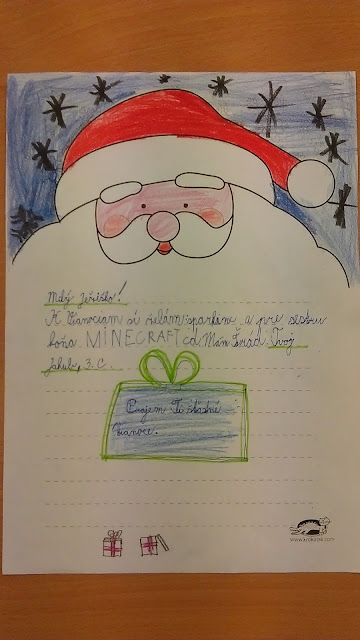 Milý Ježiško!
K Vianociam si želám spartana a pre sestru
koňa MINECRAFT cd Mám Tvoj
Jakub, 3. C.
Prajem Ti šťastné
Vianoce.
www.krokotak.com